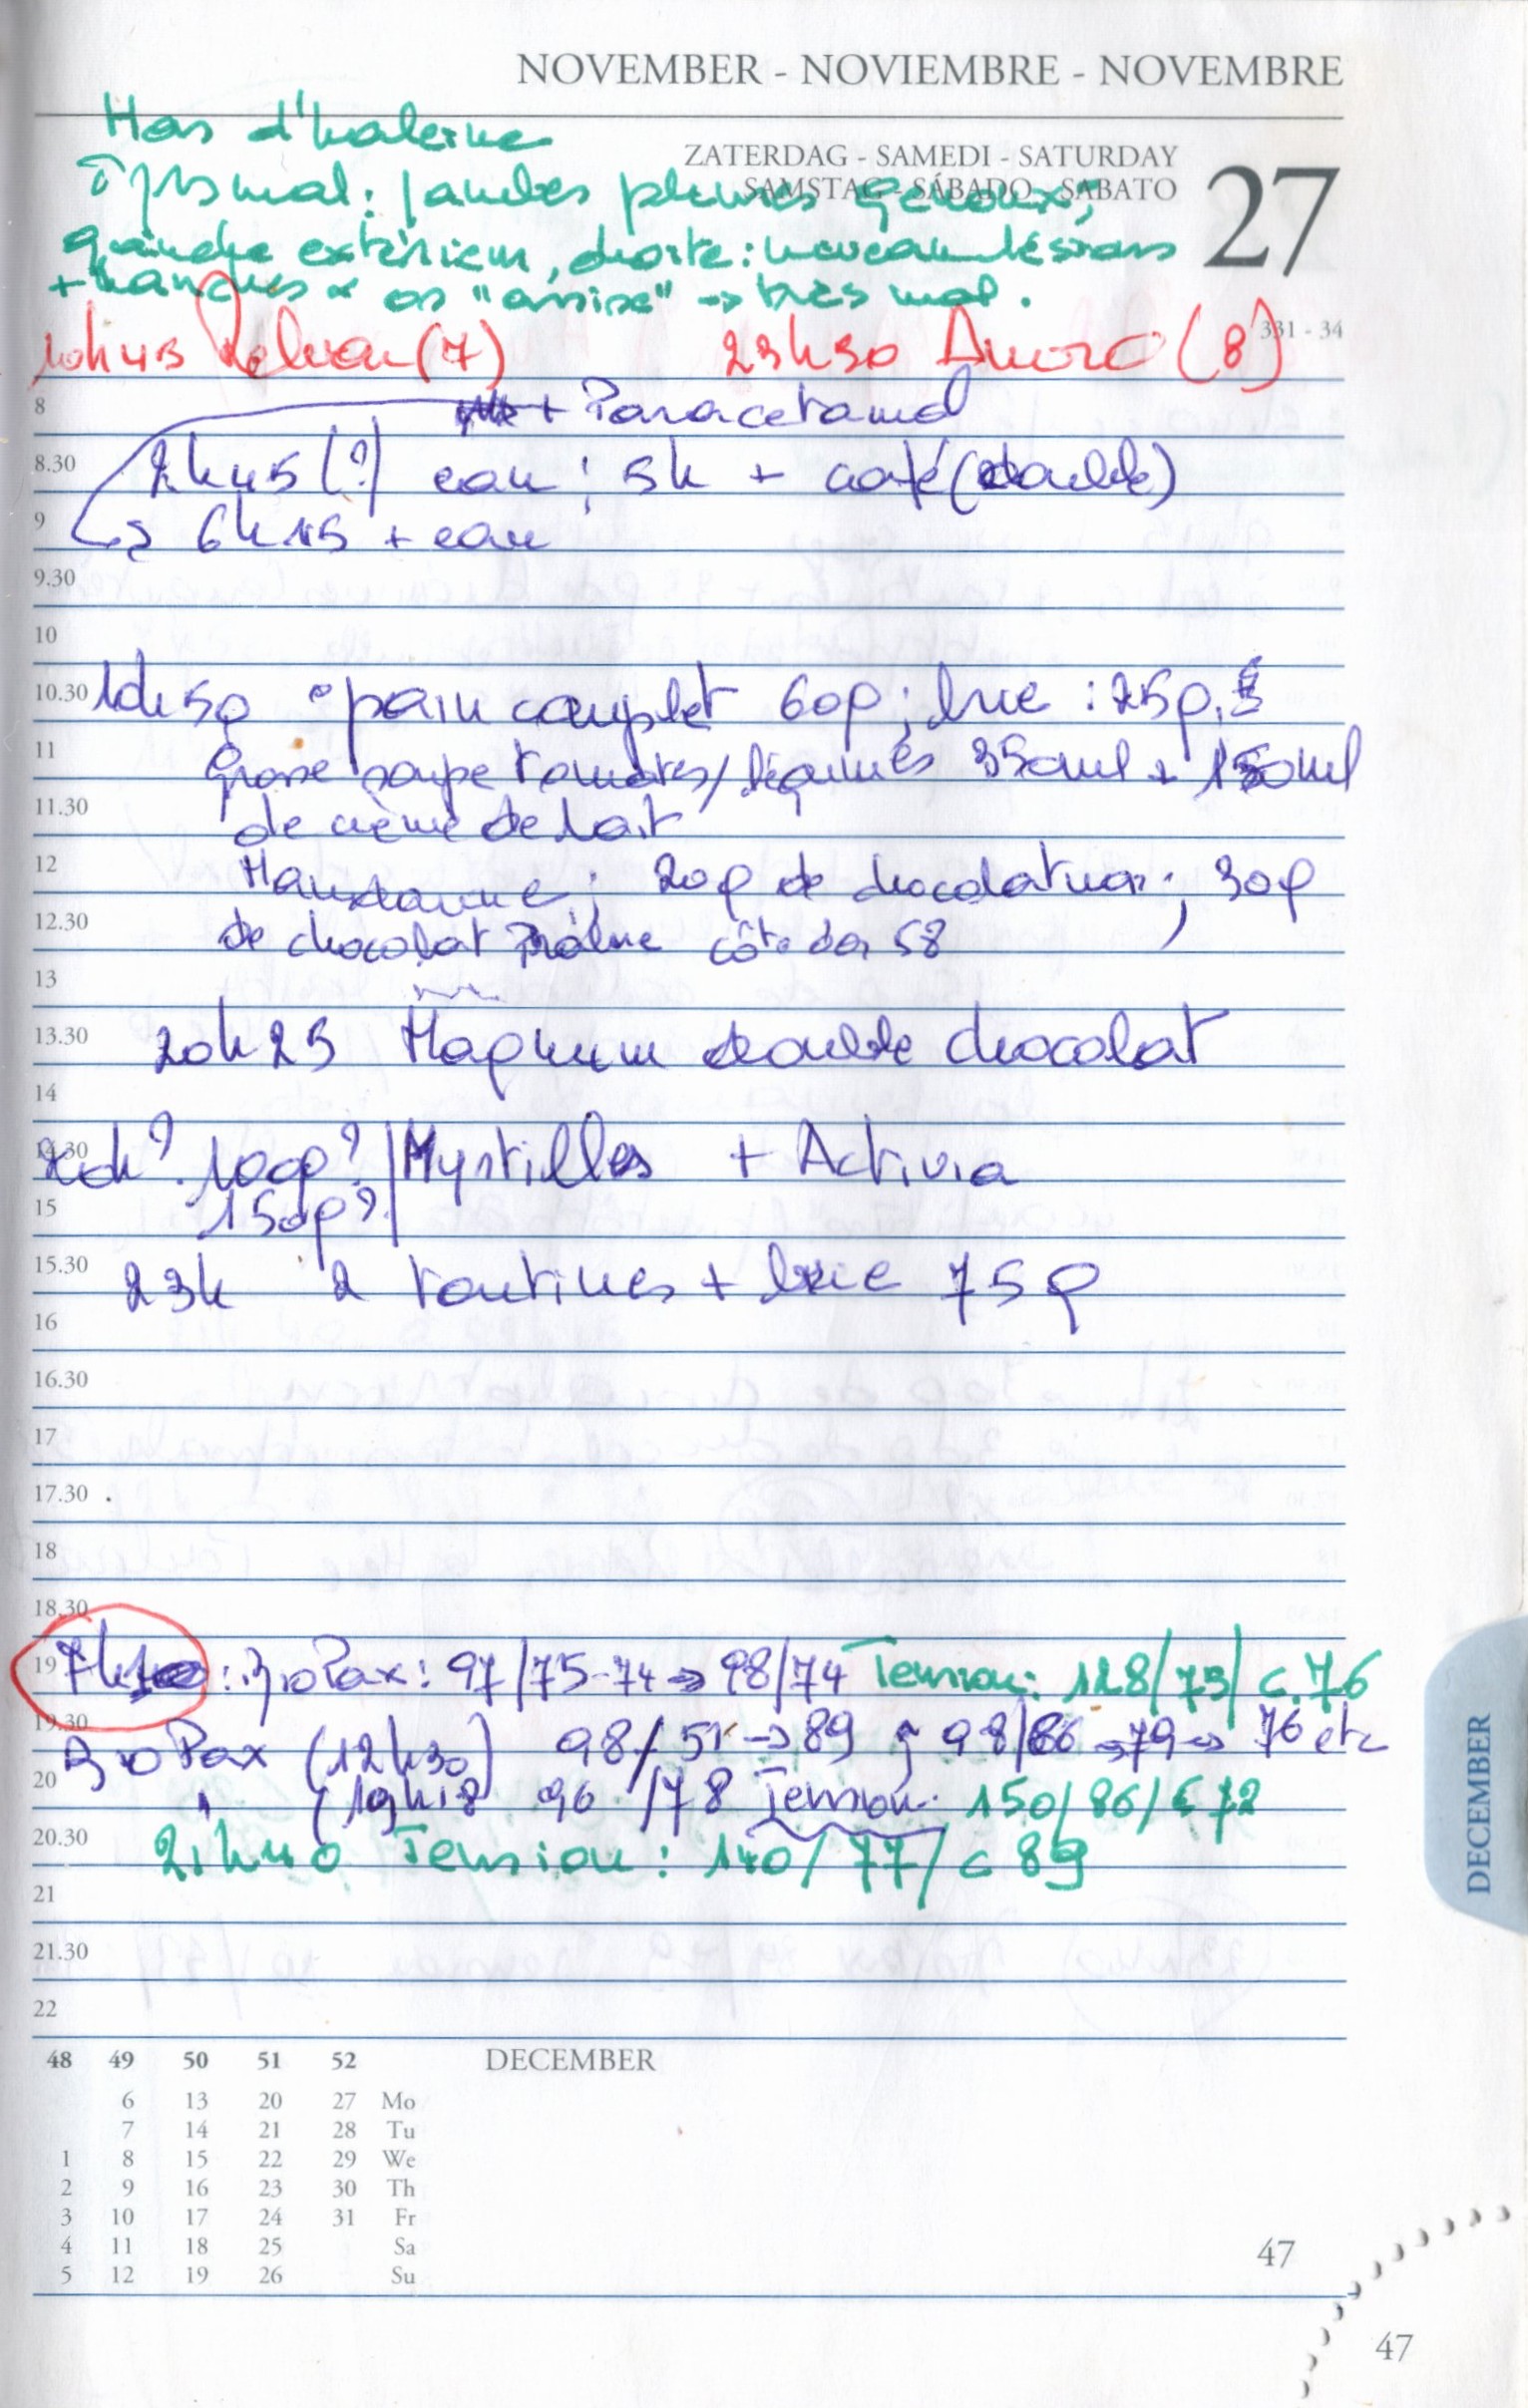 NOVEMBER - NOVIEMBRE - NOVEMBRE
Hors d'haleine
ZATERDAG - SAMEDI - SATURDAY
SAMSTAG - SÁBADO - SABATO
27
mal : jambes genoux,
gauche extérieur, droite : nouveau lésions
+ hanches os "assise" → très mal.
331 - 34
10h45 (7) 23h30 (8)
8 + Paracetamol
8.30 2h45 (?) eau ; 5h + café (double)
9 → 6h15 + eau
9.30
10
10.30 10h50 pain complet 60g ; brie : 25g.
11 Grosse soupe tomates/légumes 350ml + 150ml
11.30 de crème de lait
12 20g de ; 30g
12.30 de chocolat côte d'or 58
13
13.30 20h25 Magnum double chocolat
14
14.30 100g? Myrtilles + Activia
15 150g?
15.30 23h 2 tartines + brie 75g
16
16.30
17
17.30
18
18.30
19 : BioPax : 97/75-74 → 98/74 Tension : 128/73/ c.76
19.30 BioPax (12h30) 98/51 → 89 98/86 → 79 → 76 etc
20 " (19h18 96 /78 Tension. 150/86/c 72
20.30 21h40 Tension : 140/77/ c 89
21
21.30
22
DECEMBER
48 49 50 51 52 DECEMBER
6 13 20 27 Mo
7 14 21 28 Tu
1 8 15 22 29 We
2 9 16 23 30 Th
3 10 17 24 31 Fr
4 11 18 25 Sa
5 12 19 26 Su
47
47